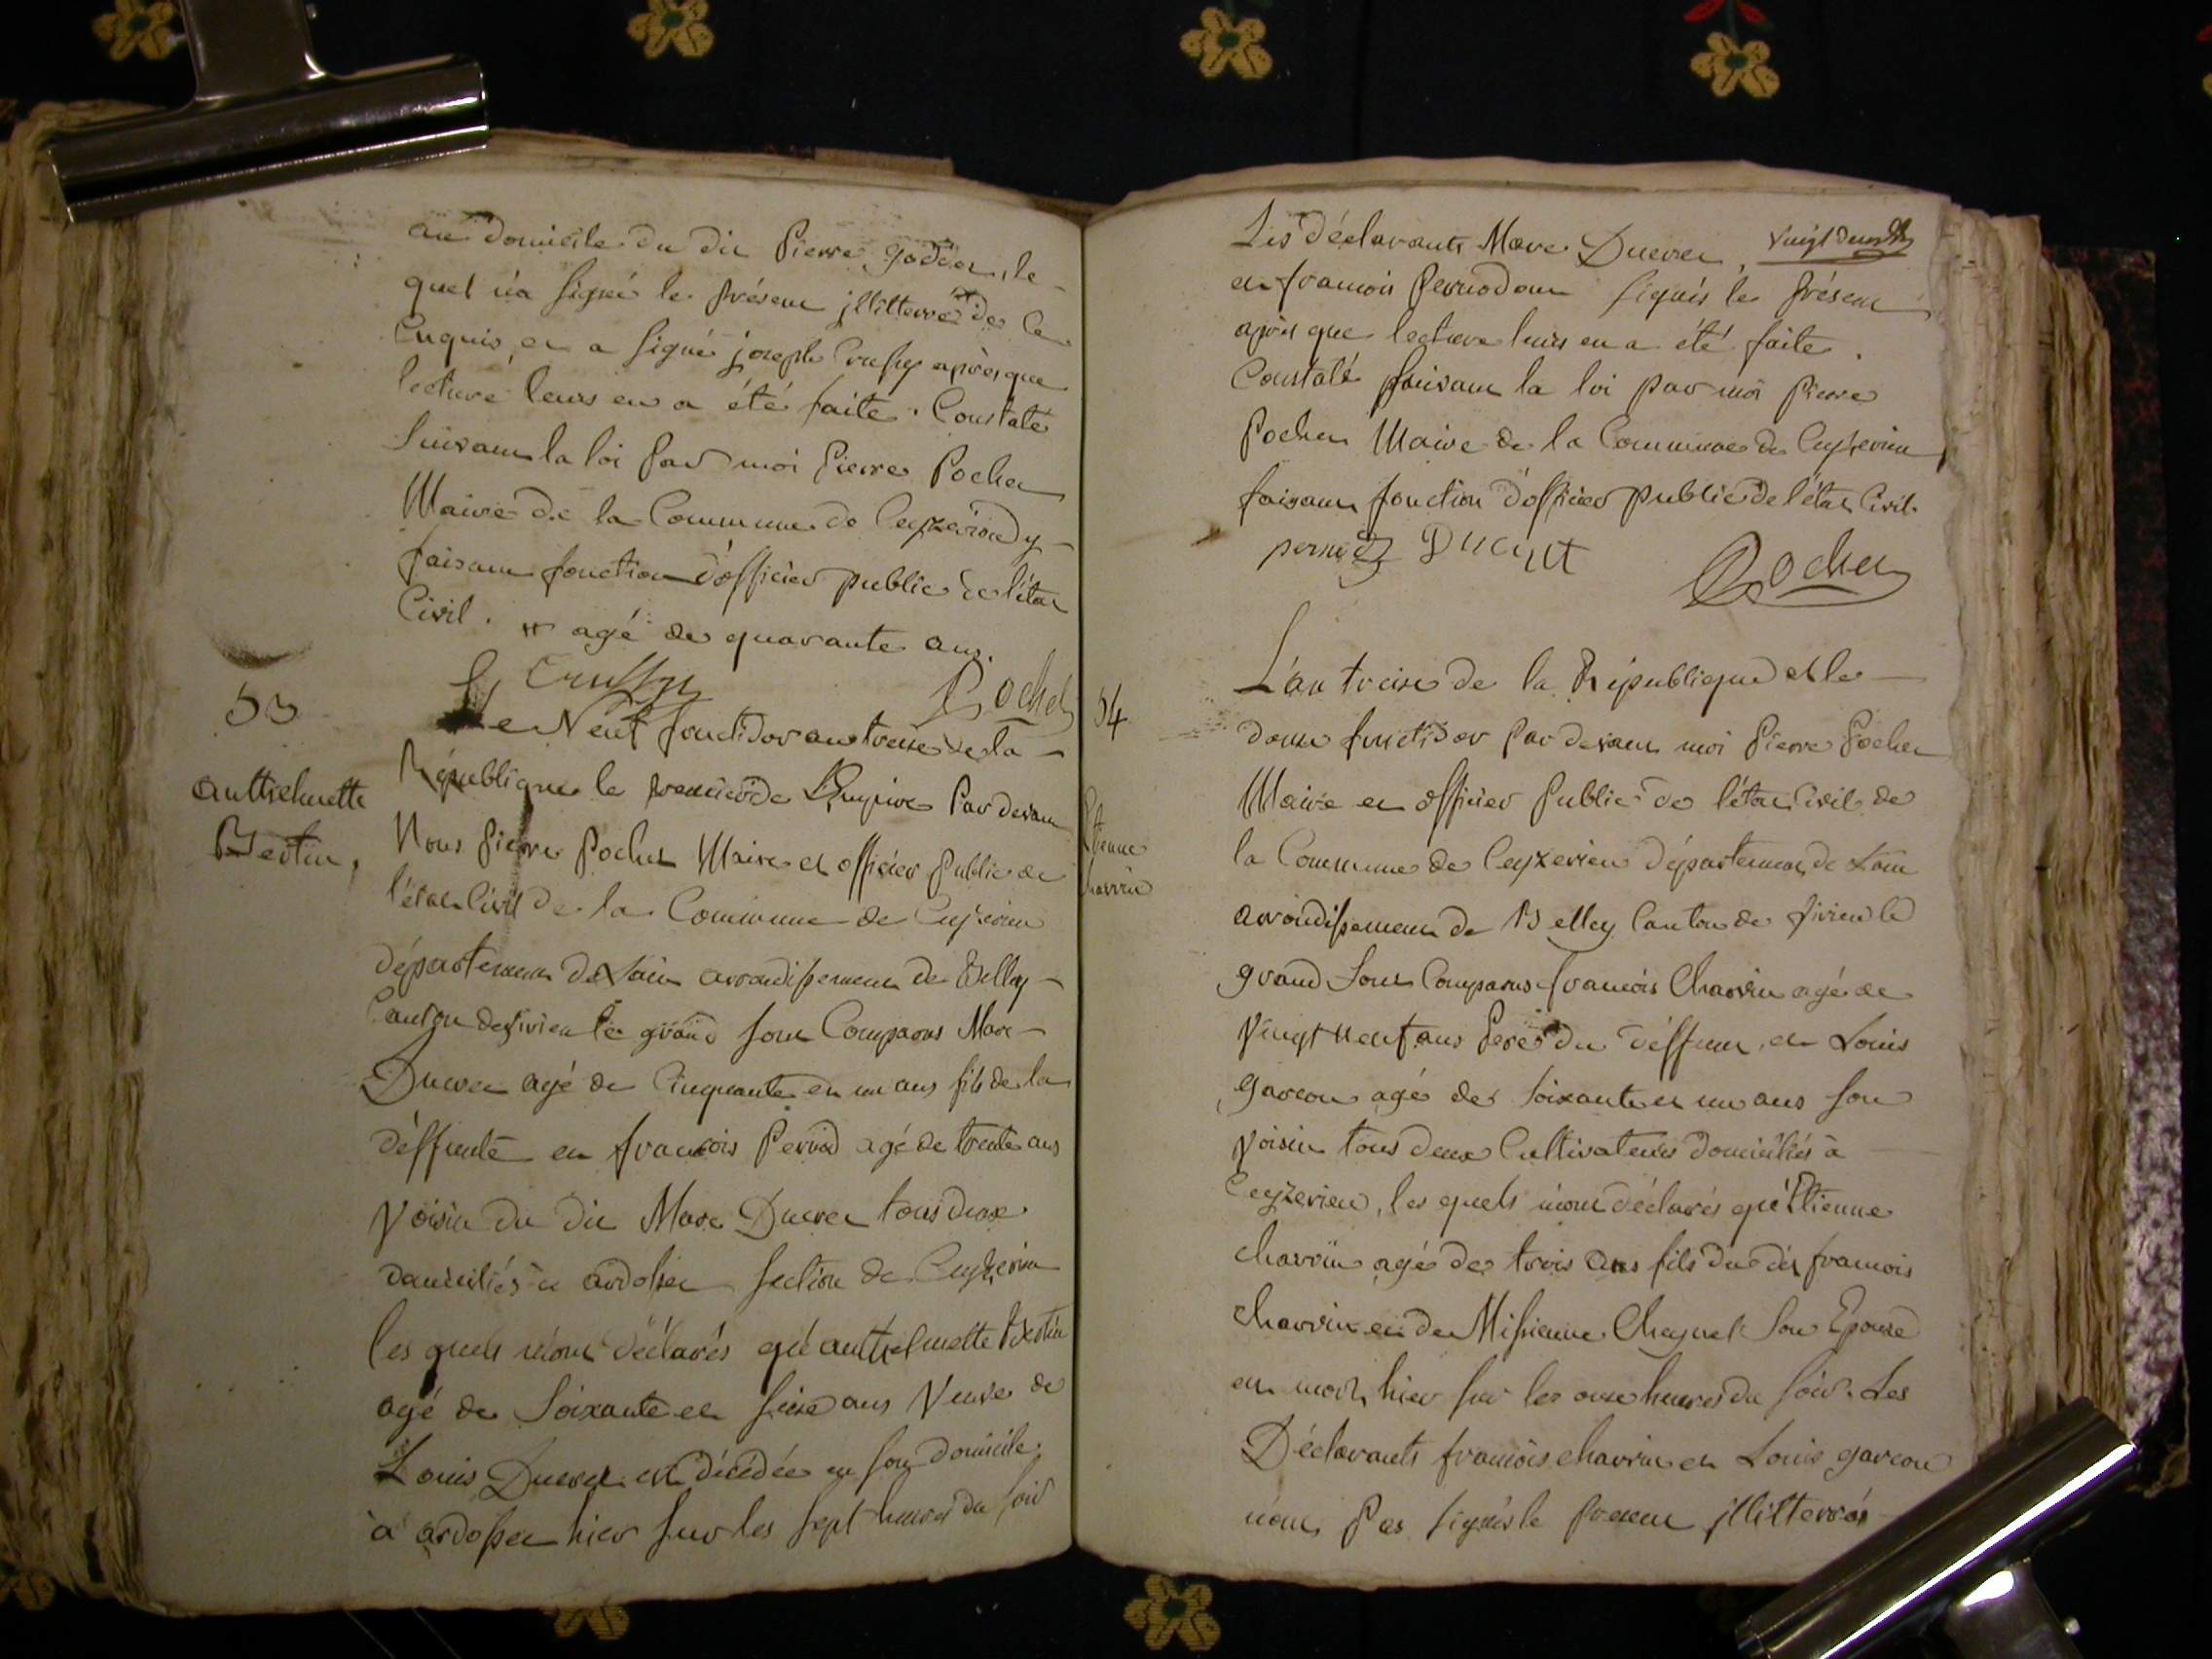 au domicile du dit Pierre godet, le
quel n'a signé le présent jllitterré de ce
Enquis, et a signé joseph Crussy après que
lecture leurs en a été faite. Constaté
Suivant la loi par moi Pierre Pochet
Maire de la Commune de Ceyzerieu y
faisant fonction d'officier public de l'état
Civil. agé de quarante ans.
Crussy Pochet
53
anthelmette
Bertin,
Le Neuf fructidor an treize de la
République le premier de L'Empire Par devant
Nous Pierre Pochet Maire et officier Public de
l'état Civil de la Commune de Ceyzerieu
département de Lain arrondissement de Belley
Canton de Virieu le grand sont Comparus Marc
Ducret agé de Cinquante et un ans fils de la
déffunte et francois Pernod agé de trente ans
Voisin du dit Marc Ducret tous deux
domiciliés à ardosset section de Ceyzerieu
les quels m'ont déclarés qu'anthelmette Bertin
agé de Soixante et seize ans Veuve de
Louis Ducret est décédée en son domicile
à ardosset hier sur les sept heures du soir
Vingt deux
Les déclarants Marc Ducret,
et francois Pernod ont signés le présent
après que lecture leurs en a été faite.
Constaté suivant la loi par moi Pierre
Pochet Maire de la Commune de Ceyzerieu
faisant fonction d'officier public de l'état Civil.
pernod Ducret Pochet
54
Etienne
charvin
L'an treize de la République et le
douze fructidor Par devant moi Pierre Pochet
Maire et officier Public de l'état Civil de
la Commune de Ceyzerieu département de Lain
arrondissement de Belley Canton de Virieu le
grand sont Comparus francois Charvin agé de
Vingt neuf ans Pere du déffunt, et Louis
garcon agé de Soixante et un ans son
Voisin tous deux Cultivateurs domiciliés à
Ceyzerieu, les quels m'ont déclarés qu'Etienne
charvin agé de trois ans fils du dit francois
charvin et de Missienne Cheynet Son Epouse
est mort hier sur les onze heures du soir. Les
Déclarants francois charvin et Louis garcon
n'ont Pas signés le present jllitterrés